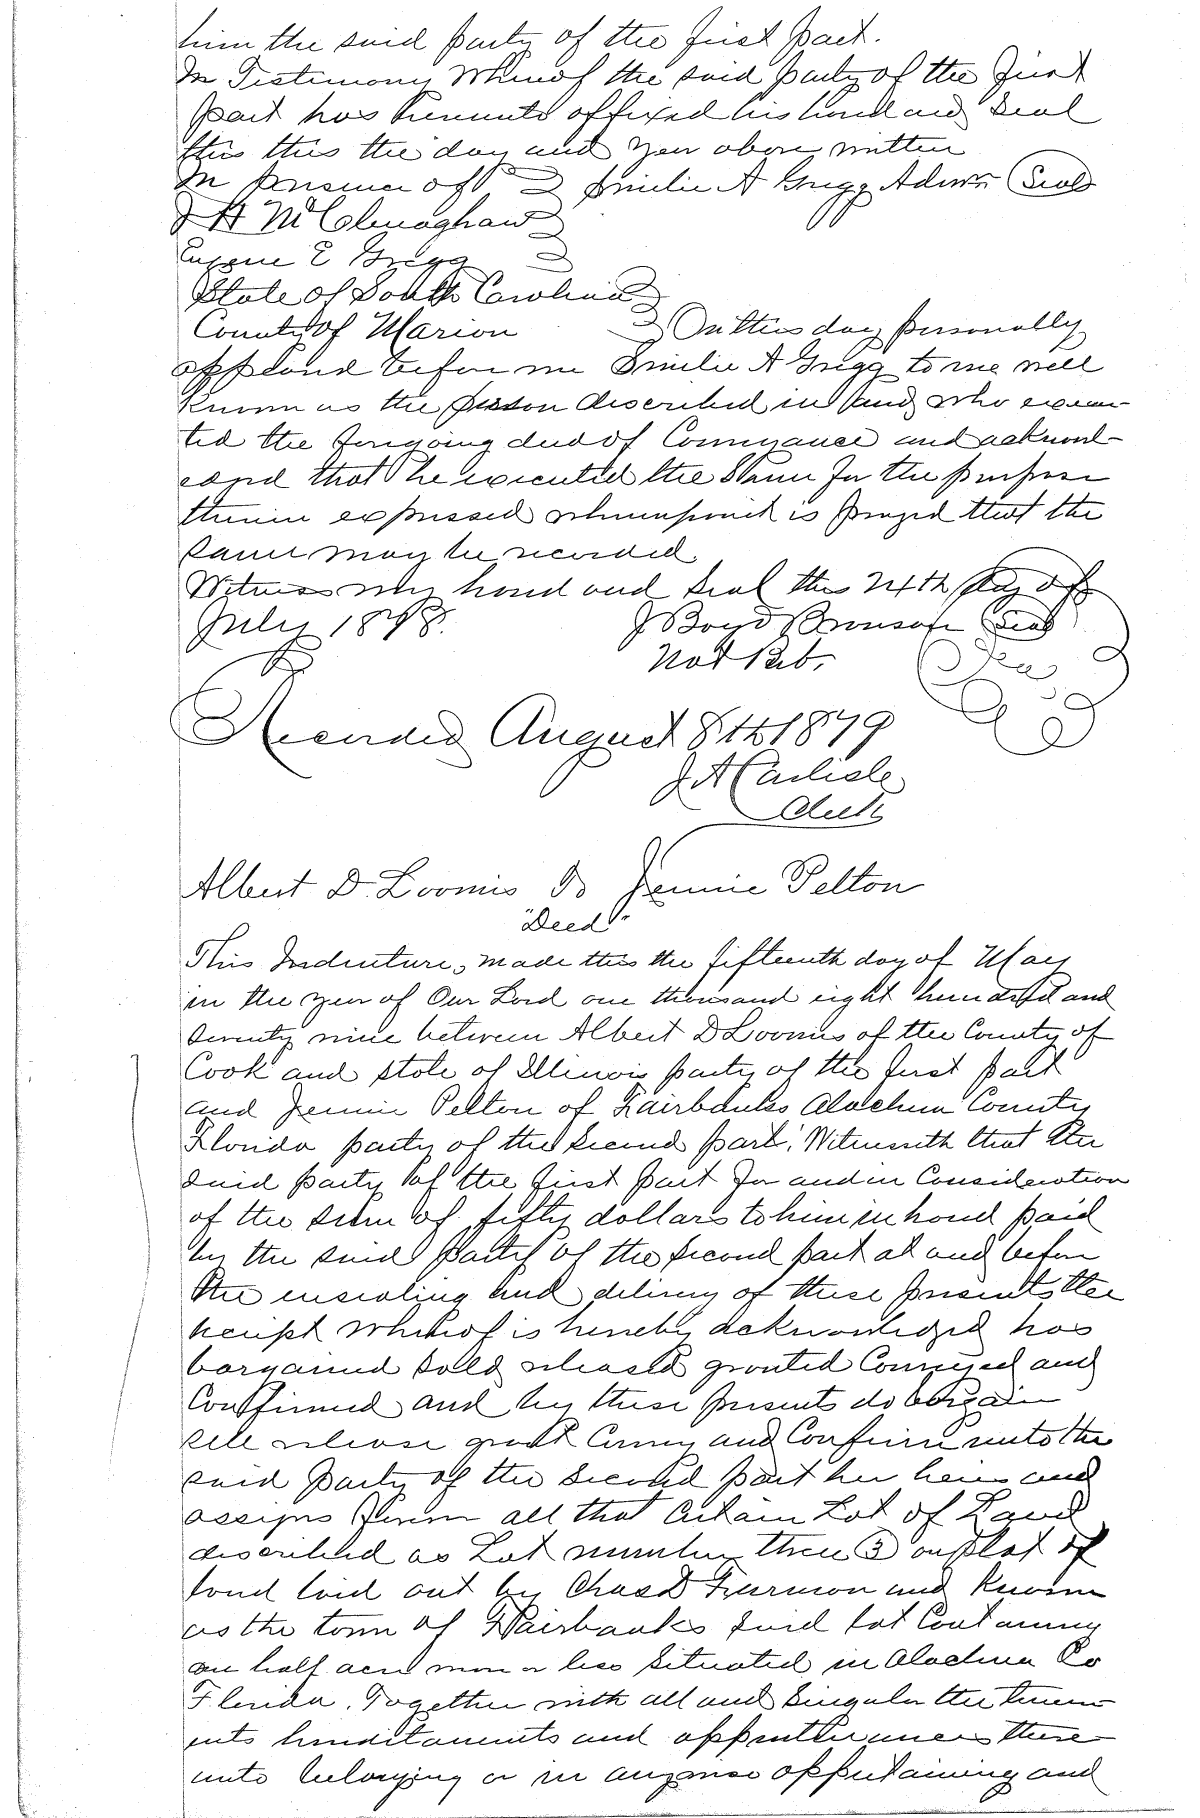 him the said party of the first part.
In Testimony Whereof the said party of the First
part has hereunto affixed his hand and Seal
this this the day and year above written
In presence of Emilie A Grigg Admr Seal
McClenaghan
Eugene E Grigg
State of South Carolina
County of Marion On this day personally
appeared before me Emilie A Grigg to me well
known as the person described in and who execu-
ted the foregoing deed of Conveyance and acknowl-
edged that he executed the same for the purpose
therein expressed whereupon it is prayed that the
same may be recorded.
Witness my hand and Seal this 24th day of
July 1878.
J Boyd Brunson Seal
Not Pub.
Recorded August 8th 1879
J A Carlisle
Clerk
Albert D. Loomis To Jennie Pelton
"Deed"
This Indenture, made this the fifteenth day of May
in the year of Our Lord one thousand eight hundred and
seventy nine between Albert D Loomis of the County of
Cook and State of Illinois party of the first part
and Jennie Pelton of Fairbanks Alachua County
Florida party of the Second part. Witnesseth that the
said party of the first part for and in Consideration
of the sum of fifty dollars to him in hand paid
by the said party of the second part at and before
the ensealing and delivery of these presents the
receipt whereof is hereby acknowledged has
bargained sold released granted Conveyed and
Confirmed and by these presents do bargain
sell release grant Convey and Confirm unto the
said party of the second part her heirs and
assigns forever all that Certain Lot of Land
described as Lot number three 3 on plat of
land laid out by Chas D Furman and Known
as the town of Fairbanks said lot Containing
one half acre more or less Situated in Alachua Co
Florida. Together with all and Singular the tenem
ents hereditaments and appurtenances there
unto belonging or in anywise appertaining and